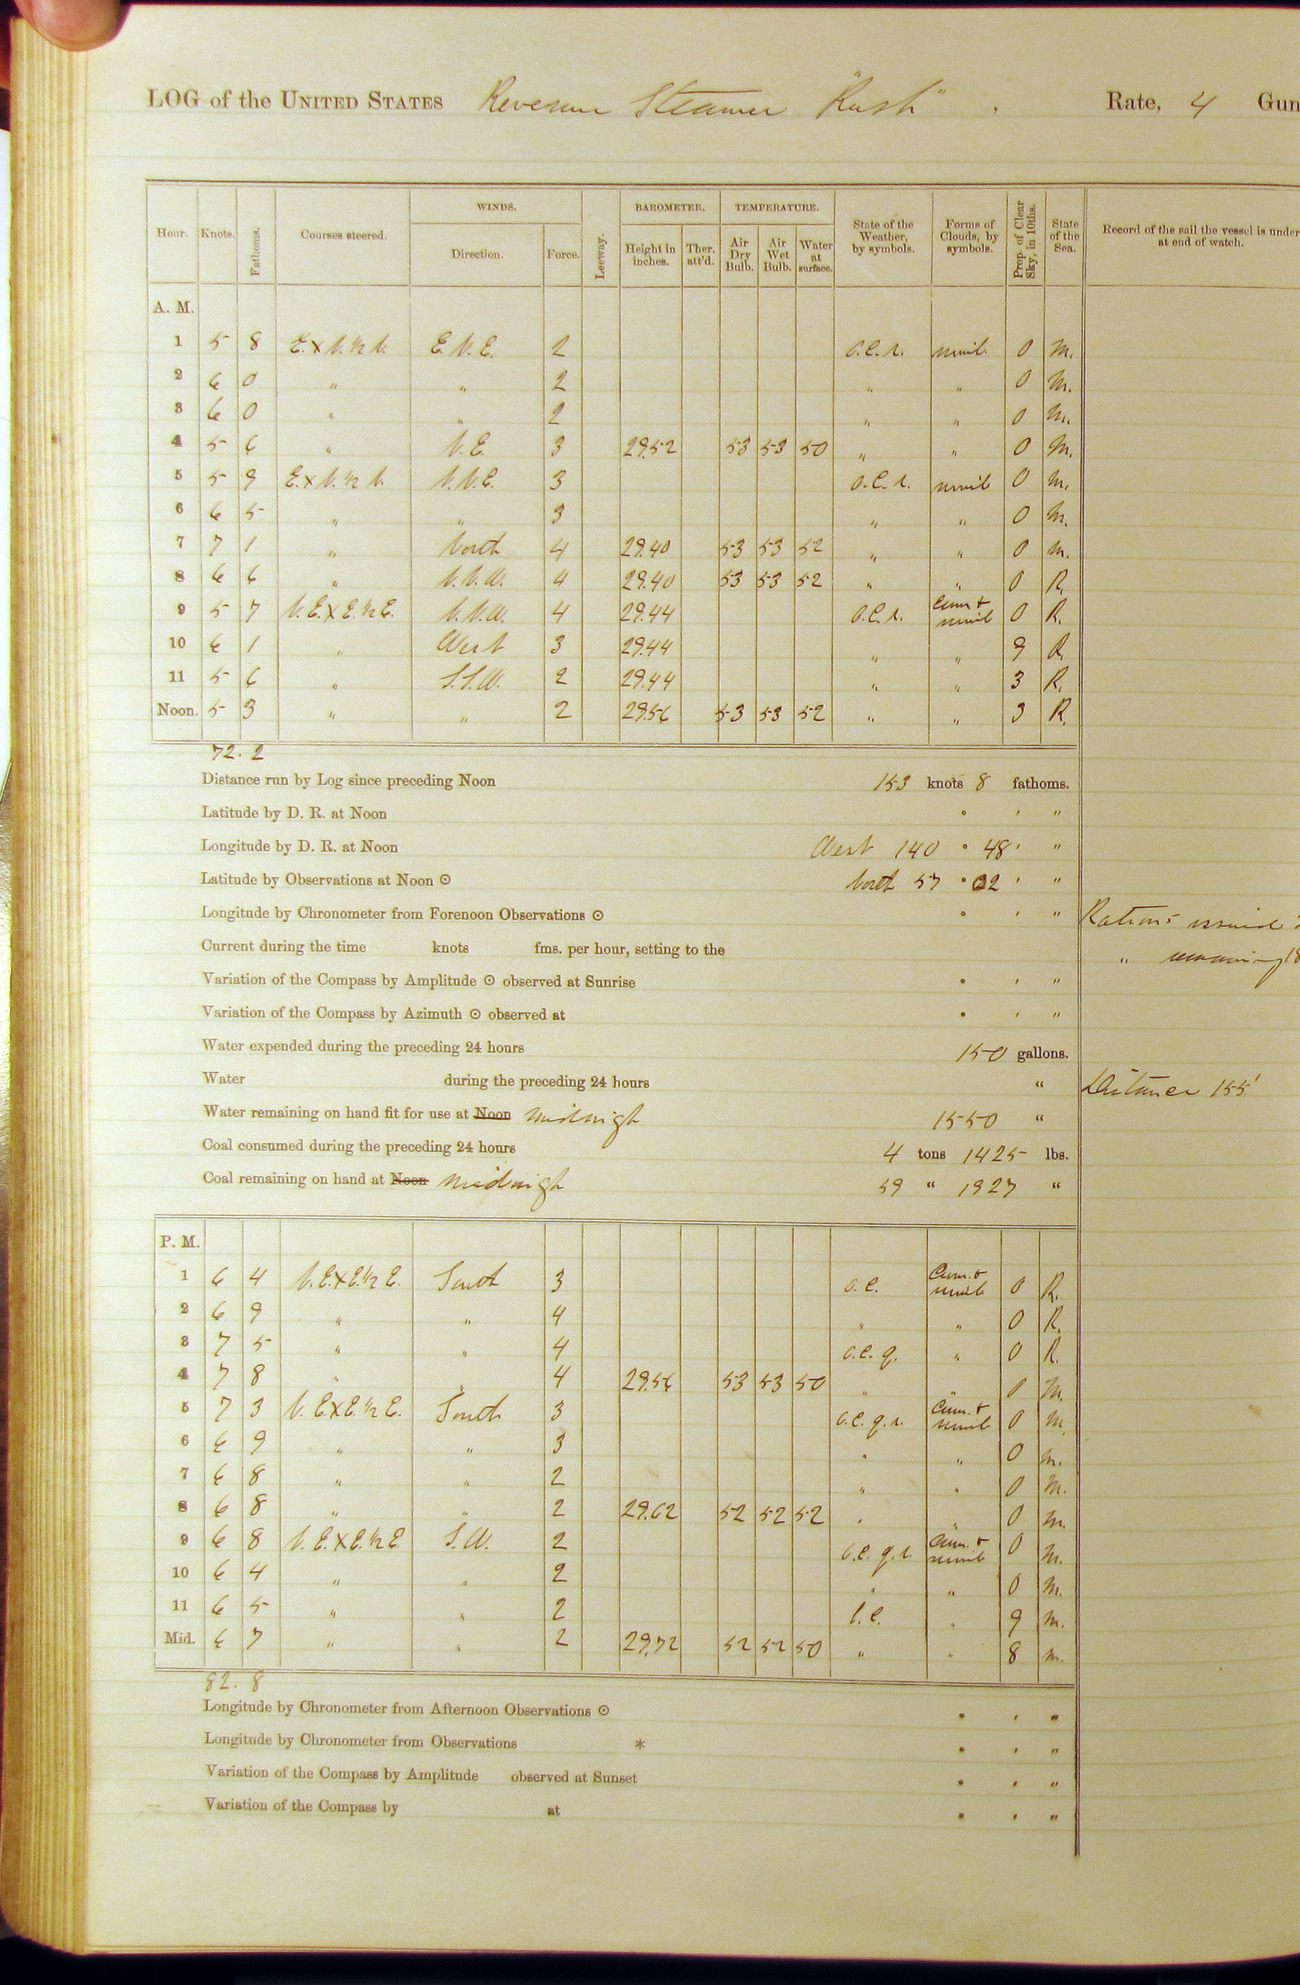 LOG of the UNITED STATES Revenue Steamer "Rush". Rate, 4 Gun
Hour. Knots. Fathoms. Courses steered. WINDS. Direction. Force. Leeway. BAROMETER. Height in inches. Ther. att'd. TEMPERATURE. Air Dry Bulb. Air Wet Bulb. Water at surface. State of the Weather, by symbols. Forms of Clouds, by symbols. Prop. of Clear Sky, in 10ths. State of the Sea. Record of the sail the vessel is under at end of watch.
A. M.
1 5 8 E.xN.½N. E.N.E. 2 o.c.r. nimb. 0 M.
2 6 0 " " 2 " " 0 M.
3 6 0 " " 2 " " 0 M.
4 5 6 " N.E. 3 29.52 53 53 50 " " 0 M.
5 5 9 E.xN.½N. N.N.E. 3 o.c.r. nimb 0 M.
6 6 5 " " 3 " " 0 M.
7 7 1 " North 4 29.40 53 53 52 " " 0 M.
8 6 6 " N.N.W. 4 29.40 53 53 52 " " 0 R.
9 5 7 N.E.xE.½E. N.N.W. 4 29.44 o.c.r. Cum & nimb 0 R.
10 6 1 " West 3 29.44 " " 9 R.
11 5 6 " S.S.W. 2 29.44 " " 3 R.
Noon. 5 3 " " 2 29.56 53 53 52 " " 3 R.
72. 2
Distance run by Log since preceding Noon 153 knots 8 fathoms.
Latitude by D. R. at Noon ° ' "
Longitude by D. R. at Noon West 140 ° 48 ' "
Latitude by Observations at Noon ⊙ North 57 ° 02 ' "
Longitude by Chronometer from Forenoon Observations ⊙ ° ' " Rations issued
Current during the time knots fms. per hour, setting to the " remaining 18
Variation of the Compass by Amplitude ⊙ observed at Sunrise ° ' "
Variation of the Compass by Azimuth ⊙ observed at ° ' "
Water expended during the preceding 24 hours 150 gallons.
Water during the preceding 24 hours " Distance 155'
Water remaining on hand fit for use at Noon Midnigh 1550 "
Coal consumed during the preceding 24 hours 4 tons 1425 lbs.
Coal remaining on hand at Noon Midnigh 59 " 1927 "
P. M.
1 6 4 N.E.xE.½E. South 3 o.c. Cum. & nimb 0 R.
2 6 9 " " 4 " " 0 R.
3 7 5 " " 4 o.c.q. " 0 R.
4 7 8 " " 4 29.56 53 53 50 " " 0 M.
5 7 3 N.E.xE.½E. South 3 o.c.q.r. Cum. & nimb 0 M.
6 6 9 " " 3 " " 0 M.
7 6 8 " " 2 " " 0 M.
8 6 8 " " 2 29.62 52 52 52 " " 0 M.
9 6 8 N.E.xE.½E S.W. 2 o.c.q.r. Cum. & nimb 0 M.
10 6 4 " " 2 " " 0 M.
11 6 5 " " 2 b.c. " 9 M.
Mid. 6 7 " " 2 29.72 52 52 50 " " 8 M.
82. 8
Longitude by Chronometer from Afternoon Observations ⊙ ° ' "
Longitude by Chronometer from Observations * ° ' "
Variation of the Compass by Amplitude observed at Sunset ° ' "
Variation of the Compass by at ° ' "